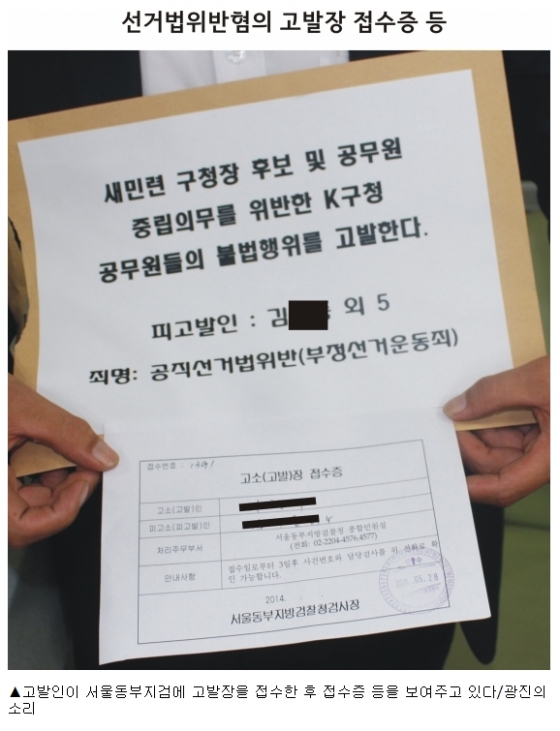 선거법위반혐의 고발장 접수증 등
새민련 구청장 후보 및 공무원
중립의무를 위반한 K구청
공무원들의 불법행위를 고발한다.
피고발인 : 김 외 5
죄명: 공직선거법위반(부정선거운동죄)
접수번호 :
고소(고발)장 접수증
고소(고발)인
피고소(피고발)인
처리주무부서
서울동부지방검찰청 종합민원실
(전화: 02-2204-4576,4577)
안내사항
접수일로부터 3일후 사건번호와 담당검사를 위 전화로 확
인 가능합니다.
2014 . . .
서울동부지방검찰청검사장
▲고발인이 서울동부지검에 고발장을 접수한 후 접수증 등을 보여주고 있다/광진의
소리